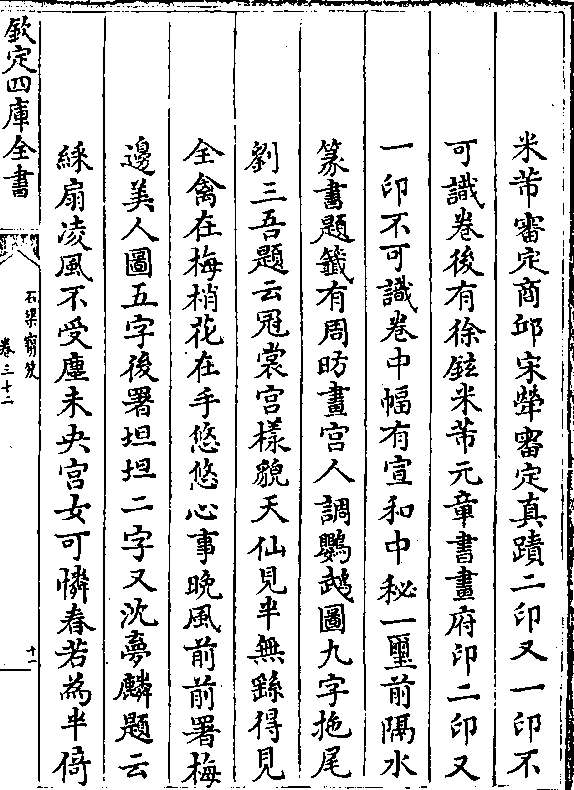 米芾審定商邱宋犖審定真蹟二印又一印不
可識卷後有徐鉉米芾元章書畫府印二印又
一印不可識卷中幅有宣和中秘一璽前隔水
篆書題籤有周昉畫宮人調鸚鵡圖九字拖尾
劉三吾題云冠裳宮樣貌天仙見半無繇得見
全禽在梅梢花在手悠悠心事晚風前前署梅
邊美人圖五字後署坦坦二字又沈夢麟題云
綵扇凌風不受塵未央宮女可憐春若為半倚
欽定四庫全書
石渠寶笈
卷三十二
十一